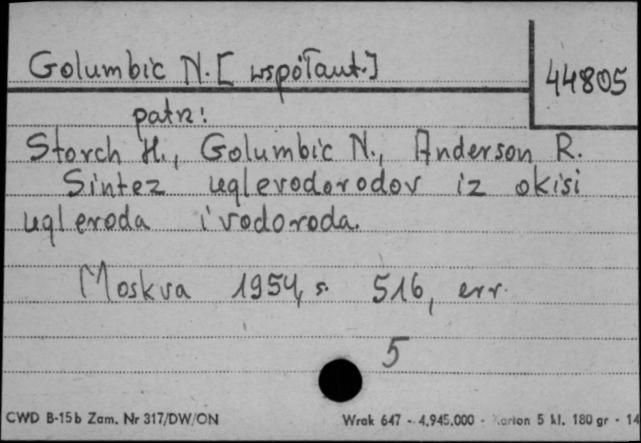 Golumbic N. [współaut.]
44805
patrz:
Storch H., Golumbic N., Anderson R.
Sintez uglevodorodov iz okisi
ugleroda i vodoroda.
Moskva 1954, s. 516, err.
5
CWD B-15b Zam. Nr 317/DW/ON
Wrak 647 - 4.945.000 - Karton 5 kl. 180 gr - 14